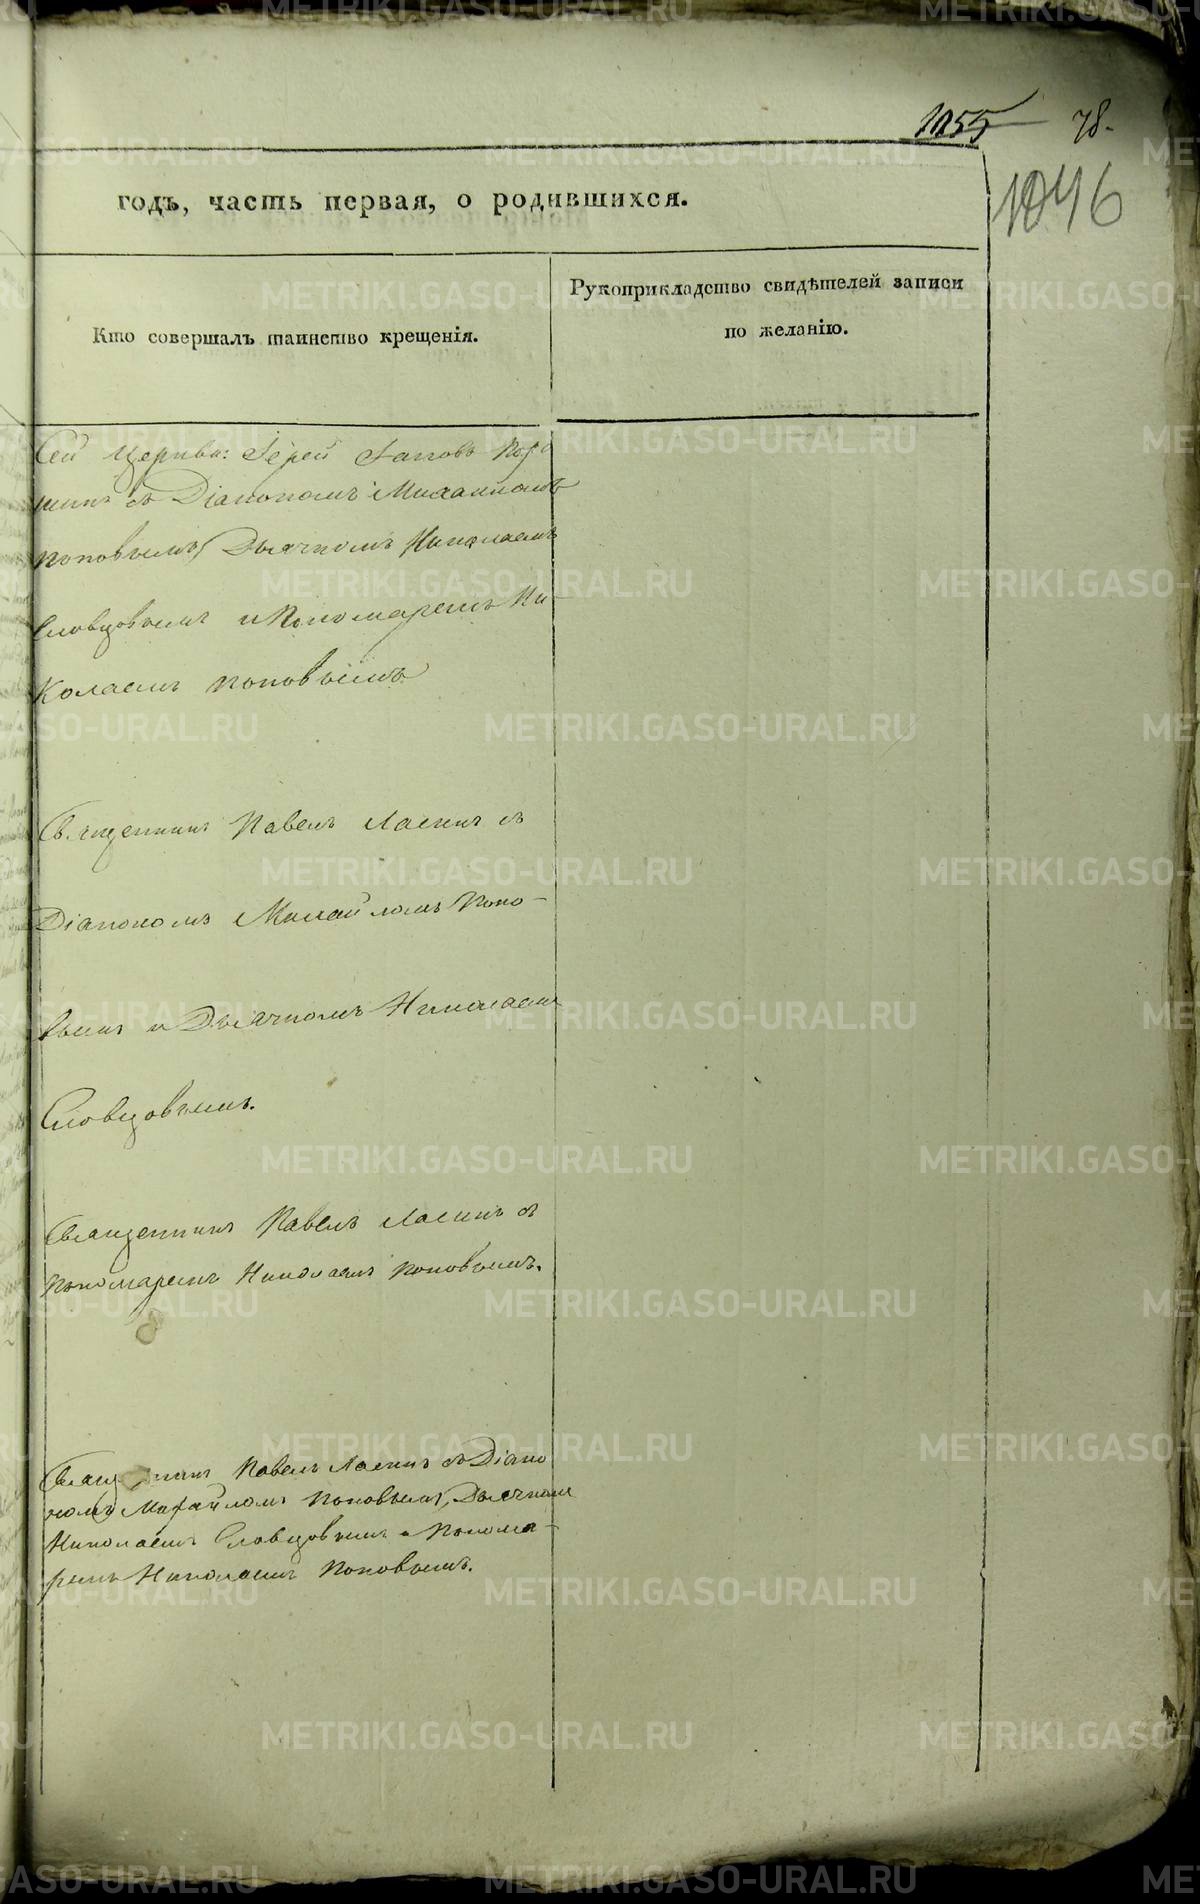 1055 78.
1046
годъ, часть первая, о родившихся.
Кто совершалъ таинство крещенія.
Рукоприкладство свидѣтелей записи
по желанію.
Сей Церкви: Іерей Іаковъ
съ Діакономъ Михаиломъ
Поповымъ, Дьячкомъ Николаемъ
Словцовымъ и Пономаремъ Ни-
колаемъ Поповымъ
Священникъ Павелъ Ласинъ съ
Діакономъ Михайломъ Попо-
вымъ и Дьячкомъ Николаемъ
Словцовымъ.
Священникъ Павелъ Ласинъ съ
Пономаремъ Николаемъ Поповымъ.
Священникъ Павелъ Ласинъ съ Діако
номъ Михайломъ Поповымъ, Дьячкомъ
Николаемъ Словцовымъ и Понома-
ремъ Николаемъ Поповымъ.
METRIKI.GASO-URAL.RU